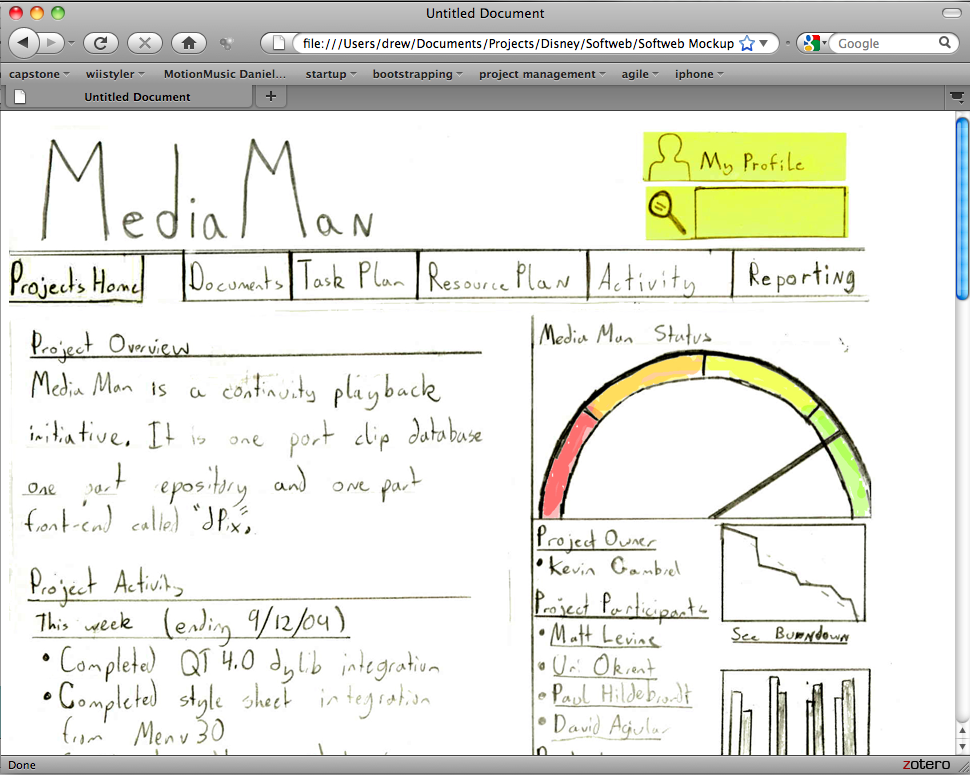 Untitled Document
file:///Users/drew/Documents/Projects/Disney/Softweb/Softweb Mockup
Google
capstone wiistyler MotionMusic Daniel... startup bootstrapping project management agile iphone
Untitled Document +
Media Man
My Profile
Projects Home Documents Task Plan Resource Plan Activity Reporting
Project Overview
Media Man is a continuity playback
initiative. It is one part clip database
one part repository and one part
front-end called "dPix."
Project Activity
This week (ending 9/12/09)
• Completed QT 4.0 dylib integration
• Completed style sheet integration
from Menv30
Media Man Status
Project Owner
• Kevin Gambrel
Project Participants
• Matt Levine
• Uri Okrent
• Paul Hildebrandt
• David Aguilar
See Burndown
Done
zotero